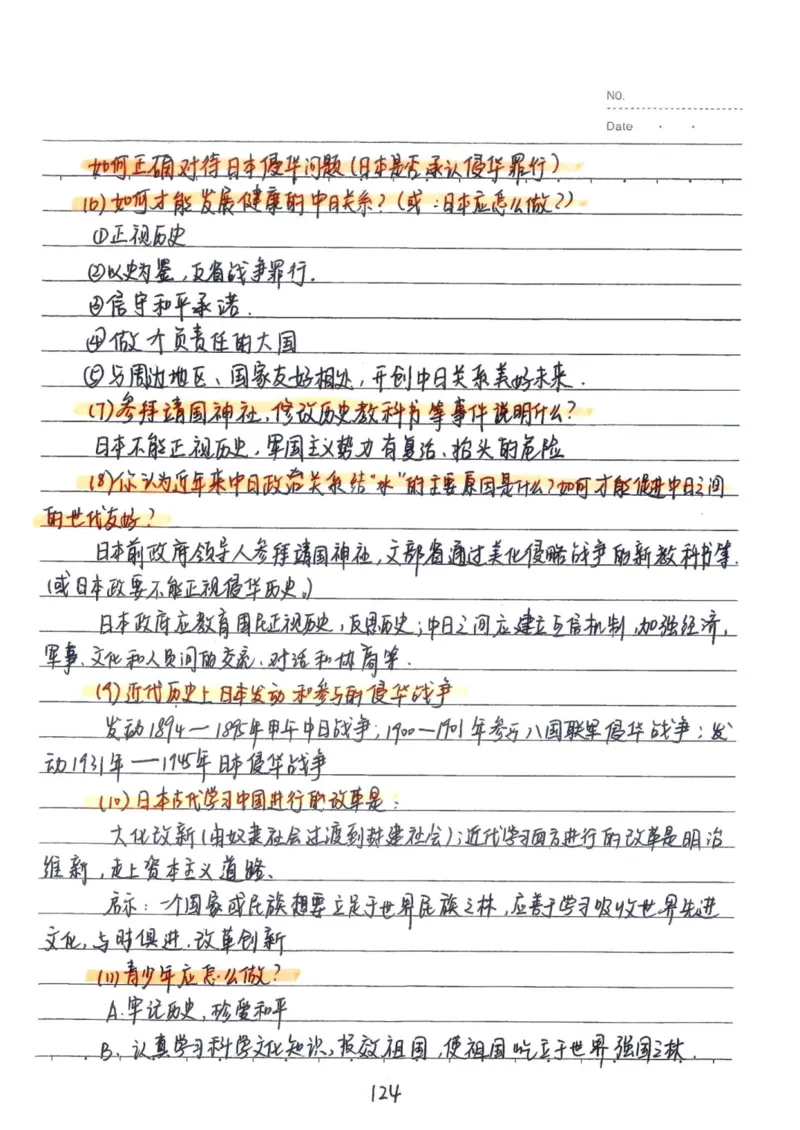 NO.
Date
如何正确对待日本侵华问题(日本是否承认侵华罪行)
(6)如何才能发展健康的中日关系?(或:日本应怎么做?)
①正视历史
②以史为鉴,反省战争罪行.
③信守和平承诺.
④做个负责任的大国
⑤与周边地区、国家友好相处,开创中日关系美好未来.
(7)参拜靖国神社,修改历史教科书等事件说明什么?
日本不能正视历史,军国主义势力有复活、抬头的危险
(8)你认为近年来中日政治关系结"冰"的主要原因是什么?如何才能促进中日之间
的世代友好?
日本前政府领导人参拜靖国神社,文部省通过美化侵略战争的新教科书等.
(或日本政要不能正视侵华历史。)
日本政府应教育国民正视历史,反思历史;中日之间应建立互信机制,加强经济,
军事、文化和人员间的交流、对话和协商等.
(9)近代历史上日本发动和参与的侵华战争
发动1894—1895年甲午中日战争;1900—1901年参与八国联军侵华战争;发
动1931年—1945年日本侵华战争
(10)日本古代学习中国进行的改革是:
大化改新(由奴隶社会过渡到封建社会);近代学习西方进行的改革是明治
维新,走上资本主义道路、
启示:一个国家或民族想要立足于世界民族之林,应善于学习吸收世界先进
文化,与时俱进,改革创新
(11)青少年应怎么做?
A.牢记历史,珍爱和平
B、认真学习科学文化知识,报效祖国,使祖国屹立于世界强国之林.
124